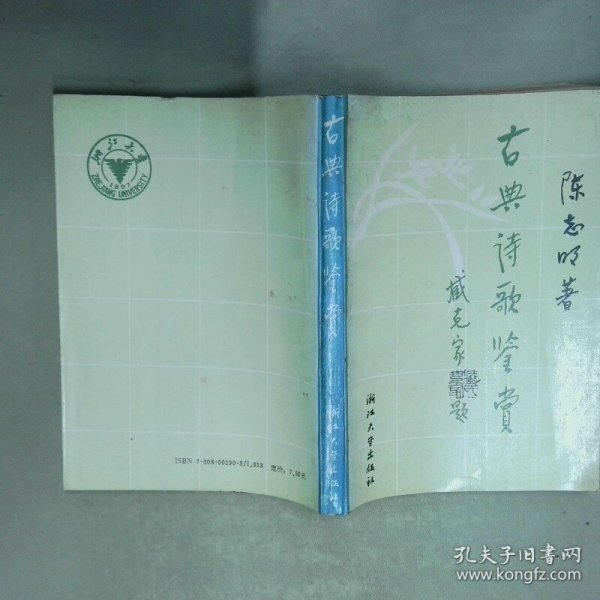 浙江大学
1897
ZHEJIANG UNIVERSITY
ISBN 7-308-00190-3/I.013 定价: 7.50元
古典诗歌鉴赏
浙江大学出版社
陈志明著
古典诗歌鉴赏
臧克家
题
浙江大学出版社
孔夫子旧书网
www.kongfz.com